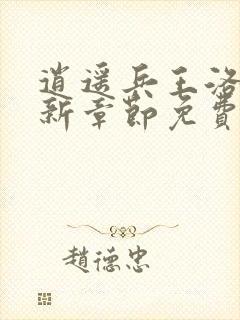 逍遥兵王洛
新章節免費
趙德忠